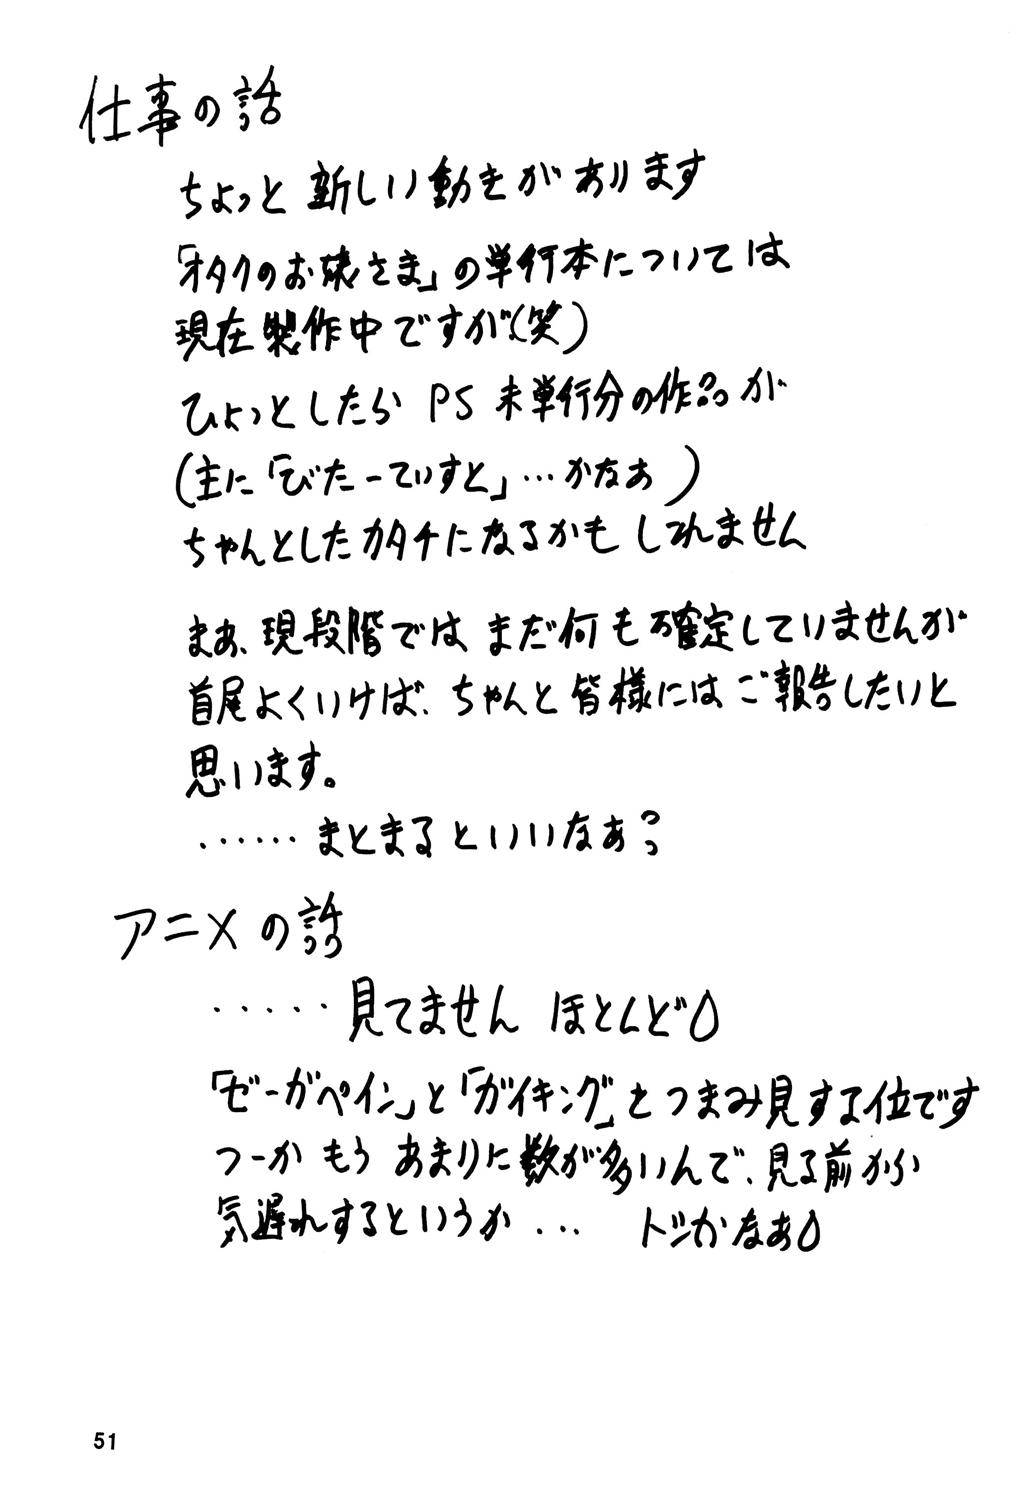 仕事の話
ちょっと 新しい動きがあります
「オタクのお嬢さま」の単行本については
現在製作中ですが(笑)
ひょっとしたら PS 未単行分の作品が
(主に「びたーていすと」…かなあ)
ちゃんとしたカタチになるかも しれません
まあ、現段階では まだ何も確定していませんが
首尾よくいけば、ちゃんと皆様にはご報告したいと
思います。
……まとまるといいなぁ?
アニメの話
‥‥‥見てません ほとんど
「ゼーガペイン」と「ガイキング」をつまみ見する位です
つーか もう あまりに数が多いんで、見る前から
気遅れするというか… トシかなあ
51